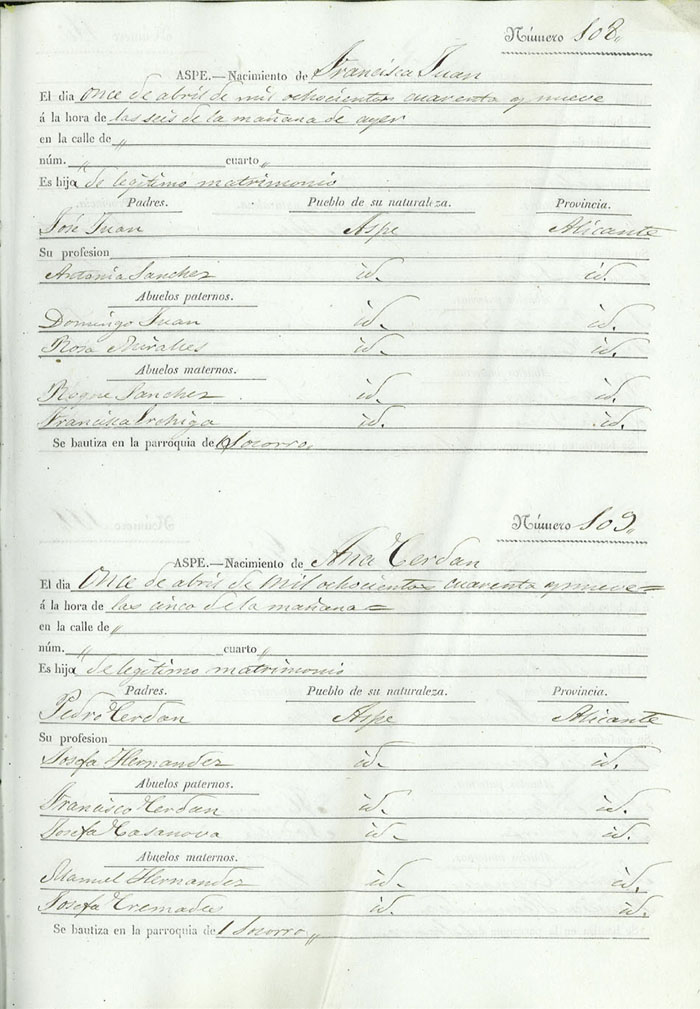 Número 108.
ASPE.—Nacimiento de Francisca Juan
El dia once de abril de mil ochocientos cuarenta y nueve
á la hora de las seis de la mañana de ayer
en la calle de „
núm. „ cuarto „
Es hija de legítimo matrimonio
Padres. Pueblo de su naturaleza. Provincia.
José Juan Aspe Alicante
Su profesion
Antonia Sanchez id. id.
Abuelos paternos.
Domingo Juan id. id.
Rosa Miralles id. id.
Abuelos maternos.
Roque Sanchez id. id.
Francisca Urchiga id. id.
Se bautiza en la parroquia del Socorro.
Número 109.
ASPE.—Nacimiento de Ana Cerdan
El dia once de abril de mil ochocientos cuarenta y nueve=
á la hora de las cinco de la mañana=
en la calle de „
núm. „ cuarto „
Es hija de legítimo matrimonio
Padres. Pueblo de su naturaleza. Provincia.
Pedro Cerdan Aspe Alicante
Su profesion
Josefa Hernandez id. id.
Abuelos paternos.
Francisco Cerdan id. id.
Josefa Casanova id. id.
Abuelos maternos.
Manuel Hernandez id. id.
Josefa Cremades id. id.
Se bautiza en la parroquia del Socorro „